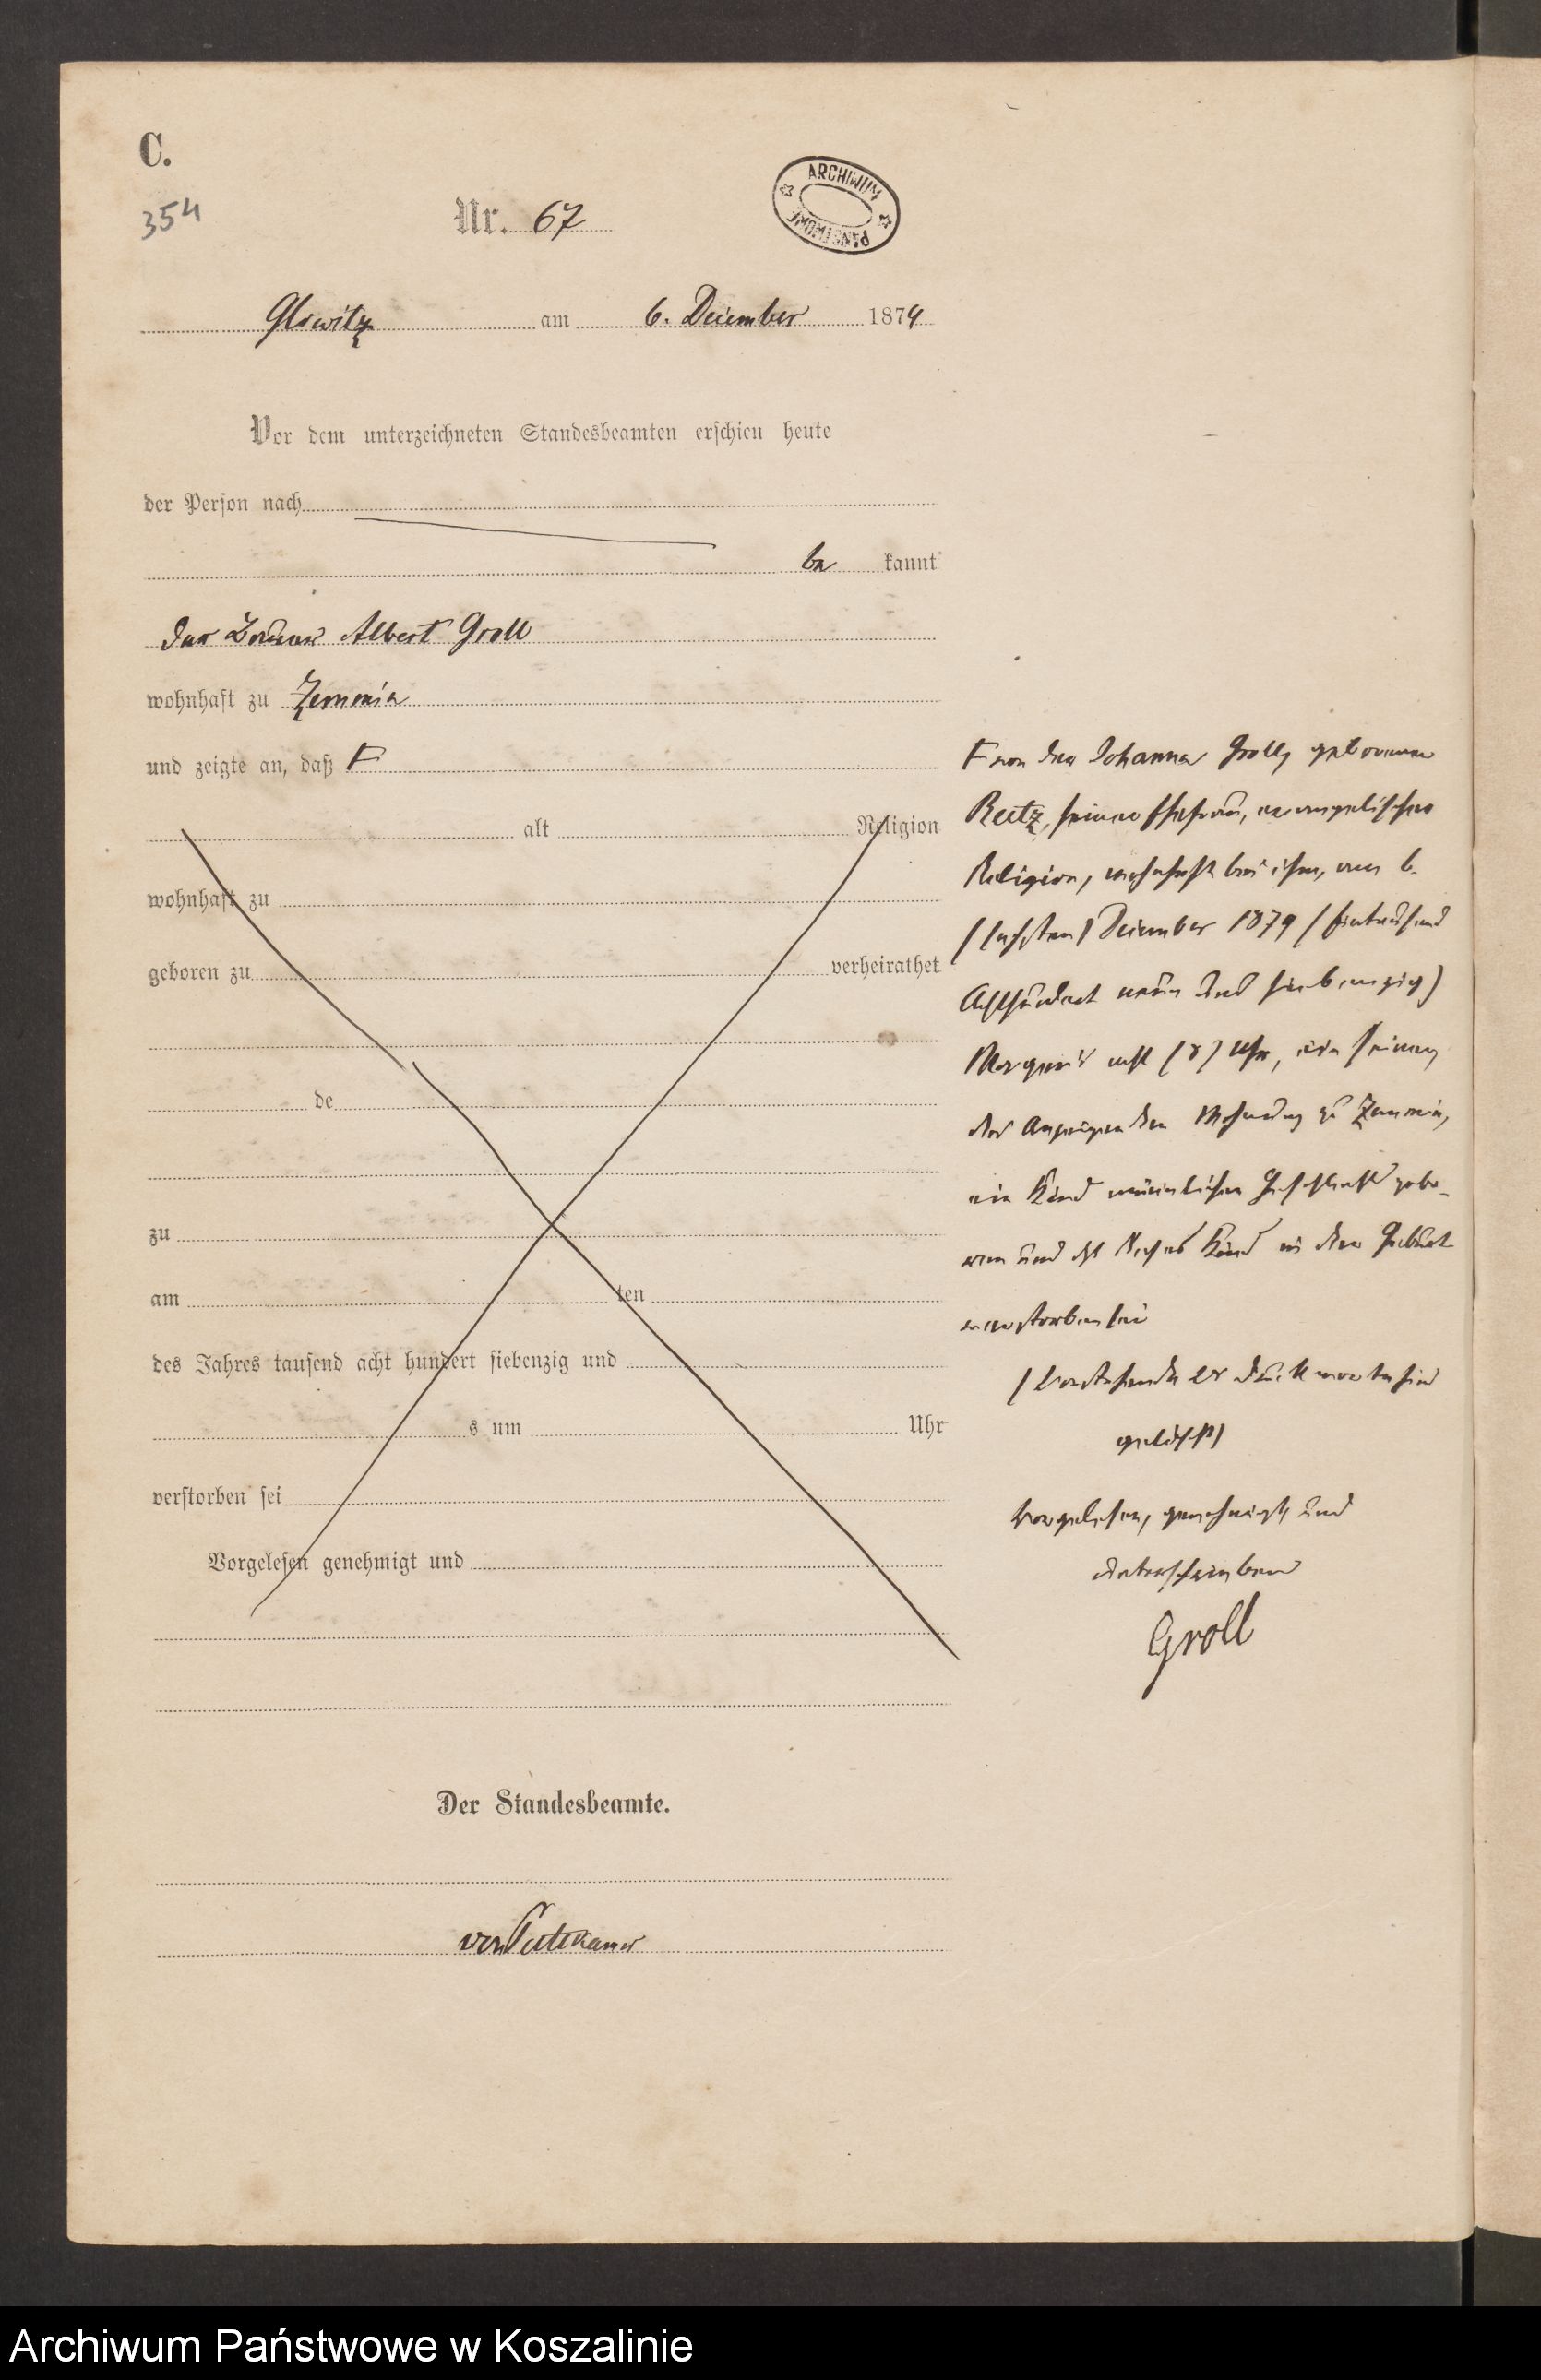 C.
354
Nr. 67
ARCHIWUM
PAŃSTWOWE
Glowitz am 6. December 1879
Vor dem unterzeichneten Standesbeamten erschien heute
der Person nach
be kannt
der Bauer Albert Groll
wohnhaft zu Zemmin
und zeigte an, daß F
alt Religion
wohnhaft zu
geboren zu verheirathet
de
zu
am ten
des Jahres tausend acht hundert siebenzig und
s um Uhr
verstorben sei
Vorgelesen genehmigt und
F von der Johanna Groll, geborenen
Reetz, seiner Ehefrau, evangelischer
Religion, wohnhaft bei ihm, am 6.
(sechsten) December 1879 (Eintausend
Achthundert neun und siebenzig)
Morgens acht (8) Uhr, in seiner,
des Anzeigenden Wohnung zu Zemmin,
ein Kind männlichen Geschlechts gebo-
ren und daß dieses Kind in der Geburt
verstorben sei
(Vorstehende 28 Druckworte sind
gelöscht)
Vorgelesen, genehmigt und
unterschrieben
Groll
Der Standesbeamte.
von Puttkamer
Archiwum Państwowe w Koszalinie